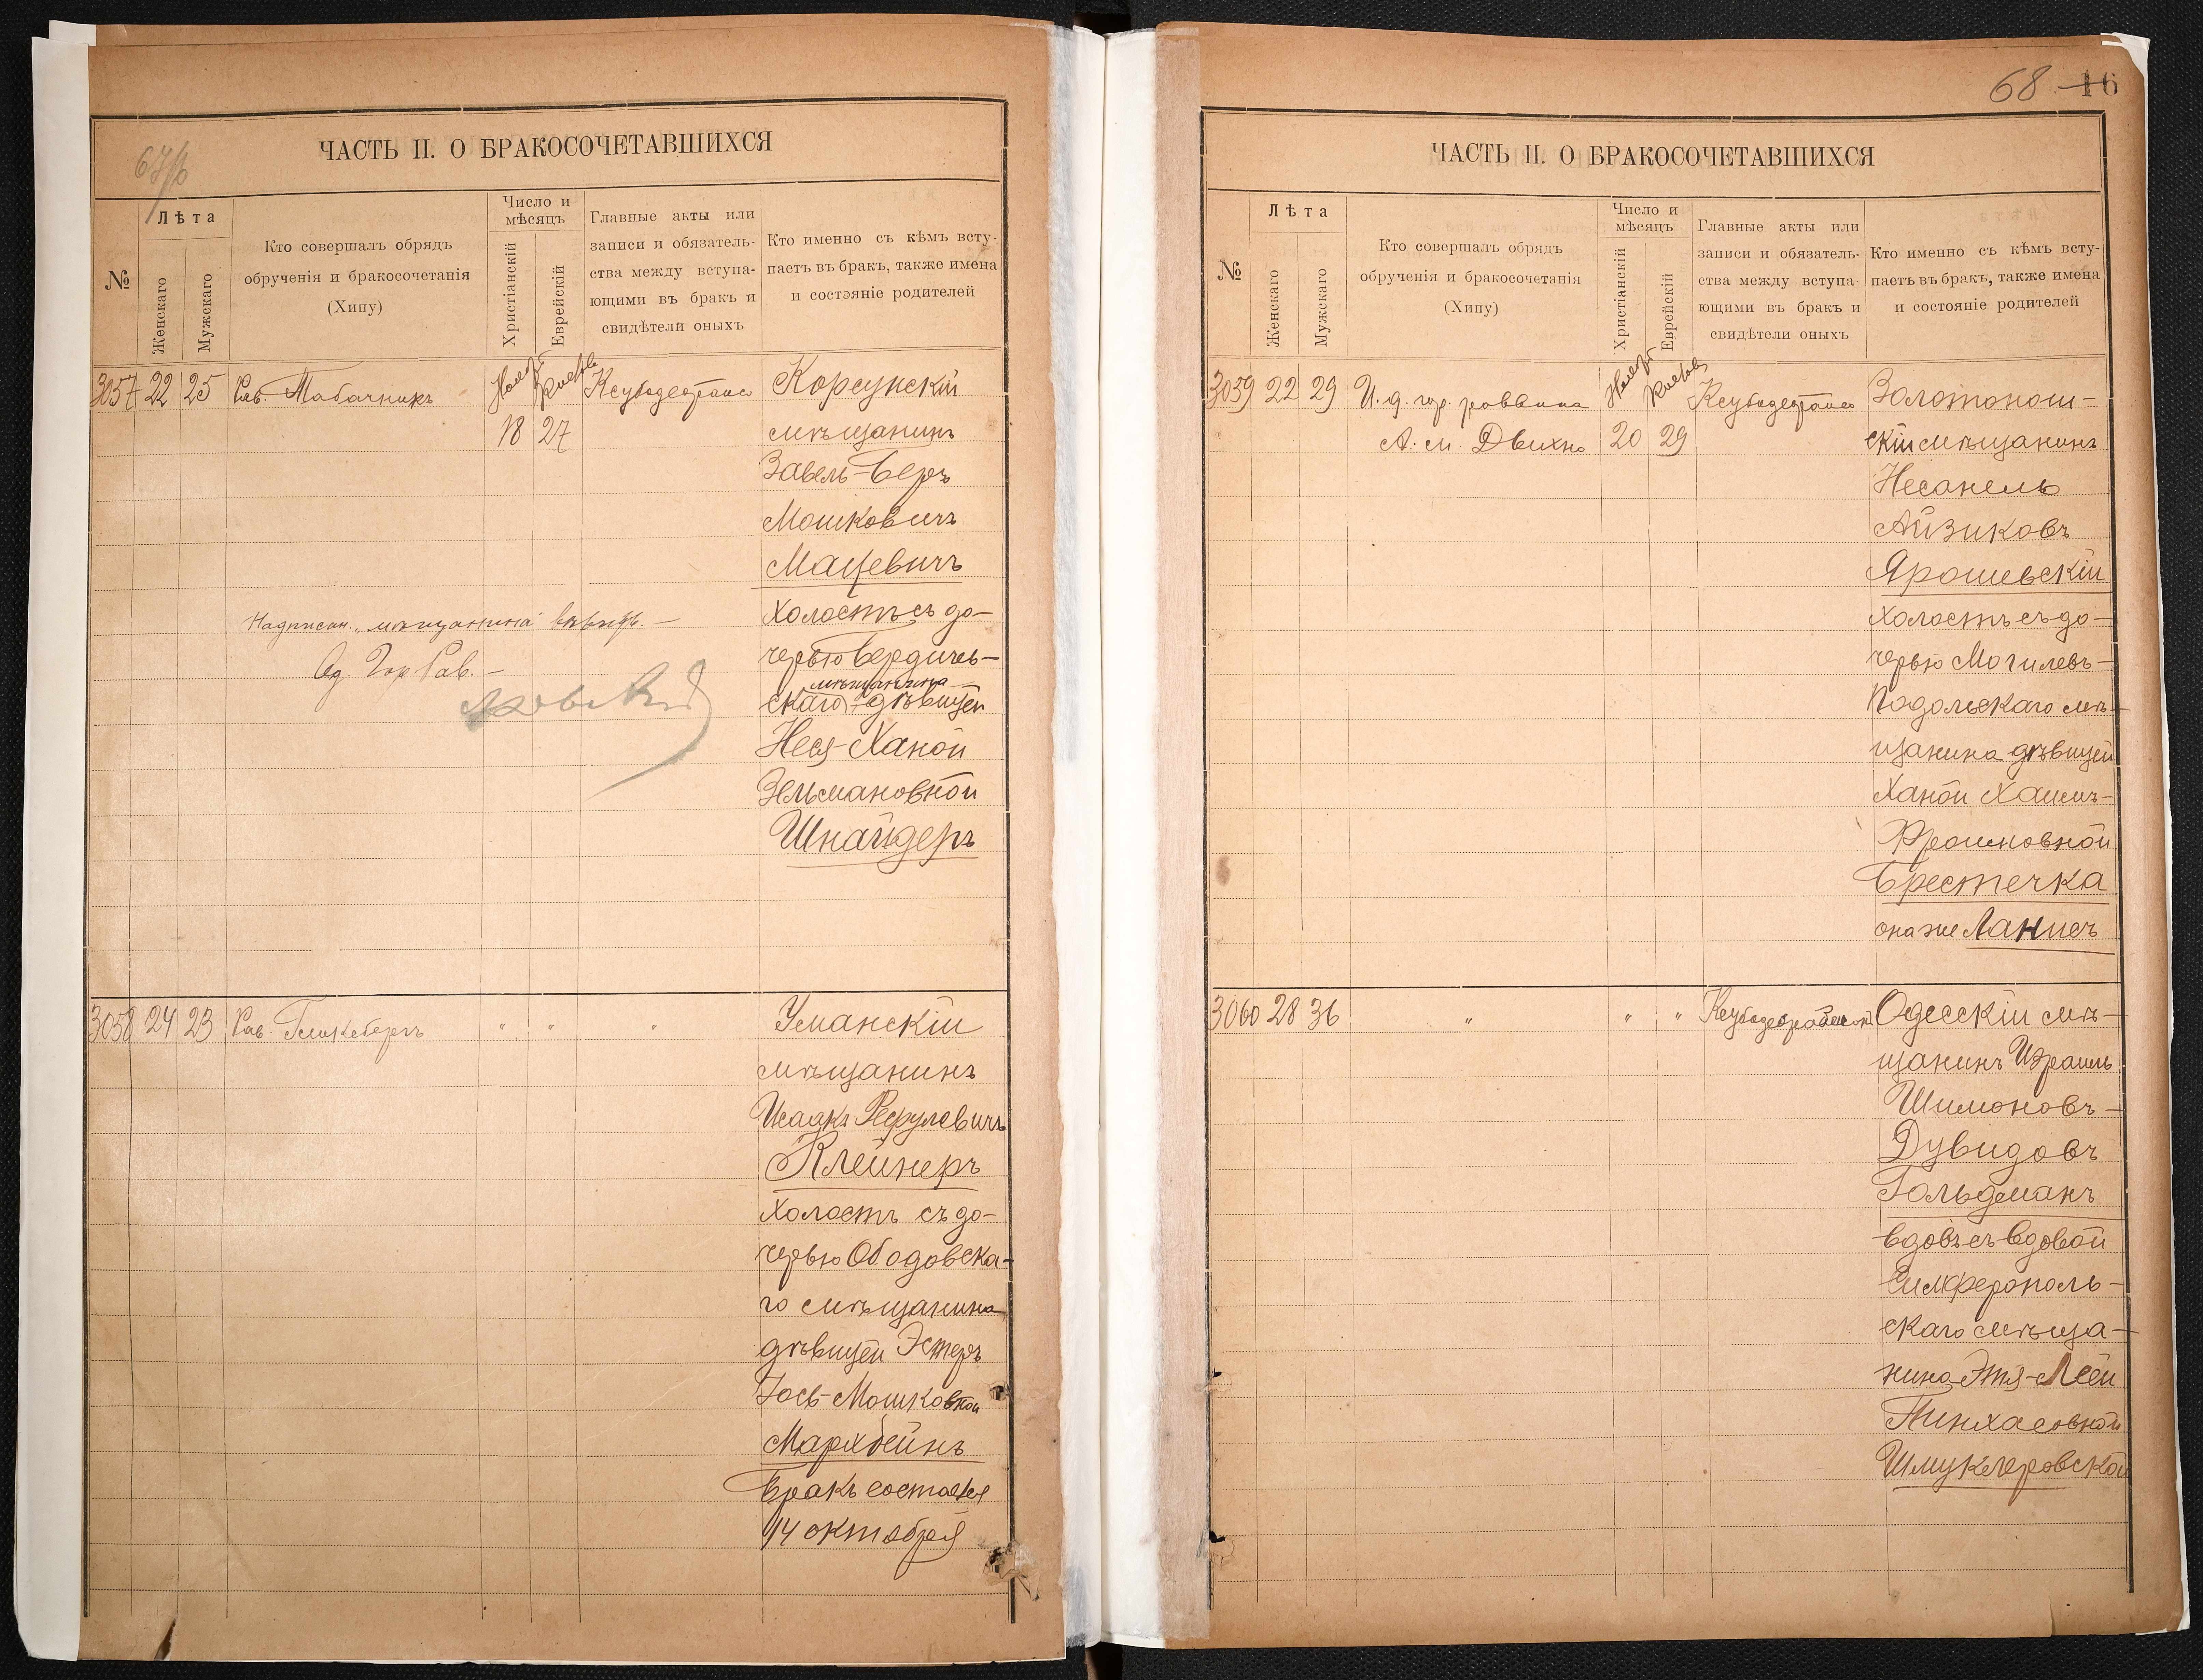 67/б
ЧАСТЬ II. О БРАКОСОЧЕТАВШИХСЯ
№
Лѣта
Женскаго
Мужскаго
Кто совершалъ обрядъ
обрученія и бракосочетанія
(Хипу)
Число и
мѣсяцъ
Христіанскій
Еврейскій
Главные акты или
записи и обязатель-
ства между вступа-
ющими въ бракъ и
свидѣтели оныхъ
Кто именно съ кѣмъ всту-
паетъ въ бракъ, также имена
и состояніе родителей
3057 22 25 Рав. Табачникъ
18 27
Корсунскій
мѣщанинъ
Завель-Беръ
Мошковичъ
Мацевичъ
холостъ съ до-
черью Бердичев-
мѣщанина
скаго дѣвицей
Неся-Ханой
Зельмановной
Шнайдеръ
Надписан. "мѣщанина"
Од. Гор. Рав.
3058 24 23 Рав. " " "
Уманскій
мѣщанинъ
Исаакъ Рефулевичъ
Клейнеръ
холостъ съ до-
черью Ободовска-
го мѣщанина
дѣвицей Эстеръ
Мошковной
Мархбейнъ
Бракъ состоялся
14 октября
68 16
ЧАСТЬ II. О БРАКОСОЧЕТАВШИХСЯ
№
Лѣта
Женскаго
Мужскаго
Кто совершалъ обрядъ
обрученія и бракосочетанія
(Хипу)
Число и
мѣсяцъ
Христіанскій
Еврейскій
Главные акты или
записи и обязатель-
ства между вступа-
ющими въ бракъ и
свидѣтели оныхъ
Кто именно съ кѣмъ всту-
паетъ въ бракъ, также имена
и состояніе родителей
3059 22 29 И. д. гор. раввина
А. М. Двихно 20 29
Золотонош-
скій мѣщанинъ
Несанель
Айзиковъ
Ярошевскій
холостъ съ до-
черью Могилевъ-
Подольскаго мѣ-
щанина дѣвицей
Ханой Хаимъ-
Фроимовной
Брестечка
она же Ланисъ
3060 28 36 " " "
Одесскій мѣ-
щанинъ Израиль
Шимоновъ-
Дувидовъ
Гольдманъ
вдовъ съ вдовой
Симферополь-
скаго мѣща-
нина Этя-Леей
Пинхасовной
Шмуклеровской